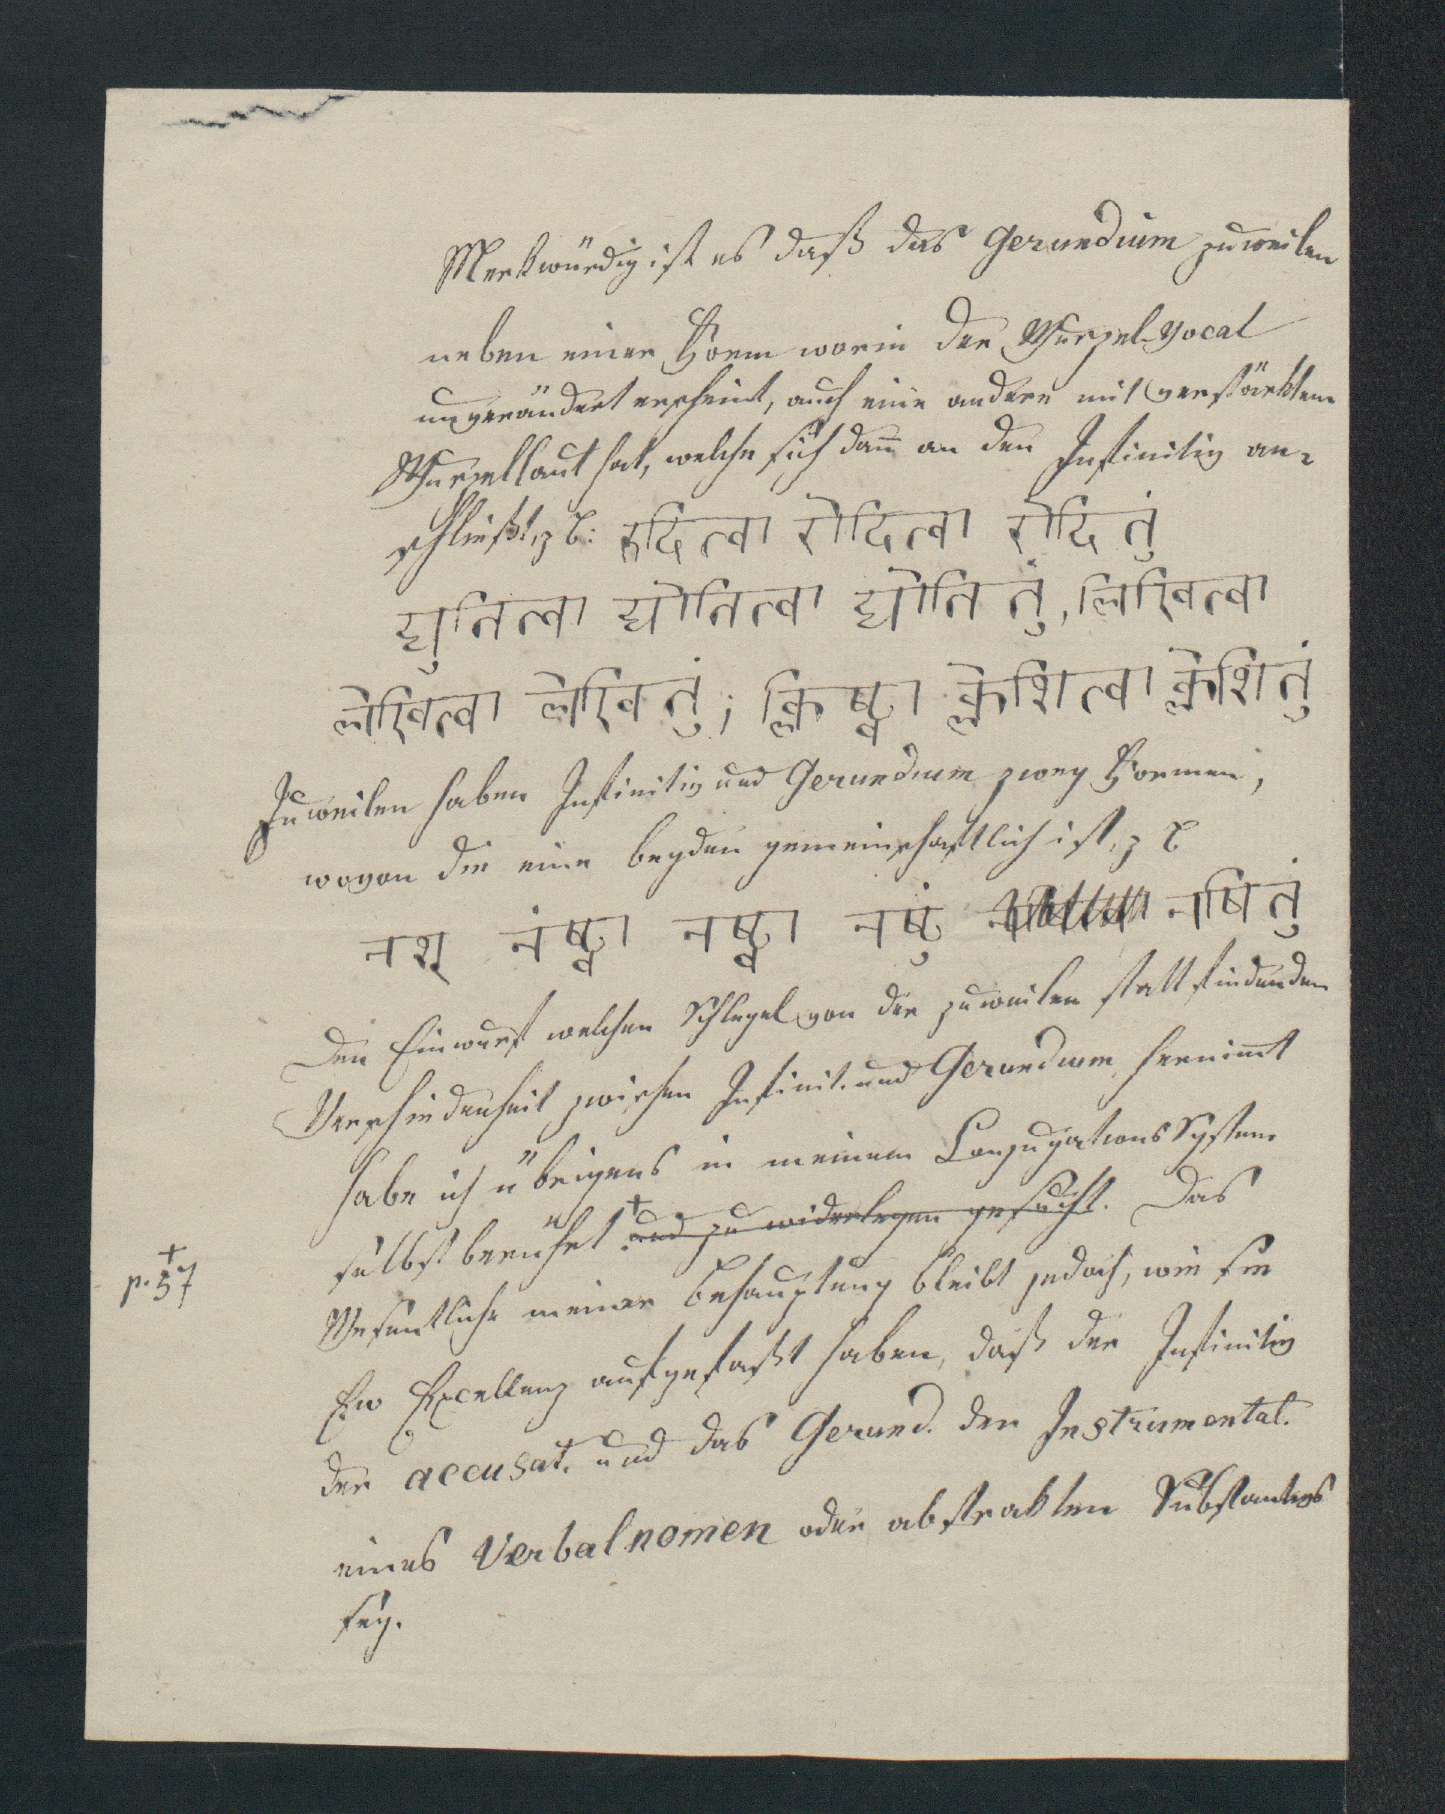 Merkwürdig ist es daß das Gerundium zuweilen
neben einer Form worin der Wurzel-Vocal
unverändert erscheint, auch eine andere mit verstärktem
Wurzellaut hat, welche sich dan̄ an den Infinitiv an-
schließt, z B: रुदित्वा रोदित्वा रोदितुं
द्युतित्वा द्योतित्वा द्योतितुं, लिखित्वा
लेखित्वा लेखितुं; क्लिष्ट्वा क्लेशित्वा क्लेशितुं
Zuweilen haben Infinitiv und Gerundium zwey Formen,
wovon die eine beyden gemeinschaftlich ist, z B
नश् नंष्ट्वा नष्ट्वा नष्टुं नषितुं
Den Einwurf welchen Schlegel von der zuweilen statt findenden
Verschiedenheit zwischen Infinit. und Gerundium hernim̄t
habe ich übrigens in meinem Conjugations System
selbst berührt † und zu widerlegen gesucht. Das
† p. 57
Wesentliche meiner Behauptung bleibt jedoch, wie sie
Ew Excellenz aufgefaßt haben, daß der Infinitiv
der accusat. und das Gerund. der Instrumental.
eines Verbalnomen oder abstrakten Substantivs
sey.